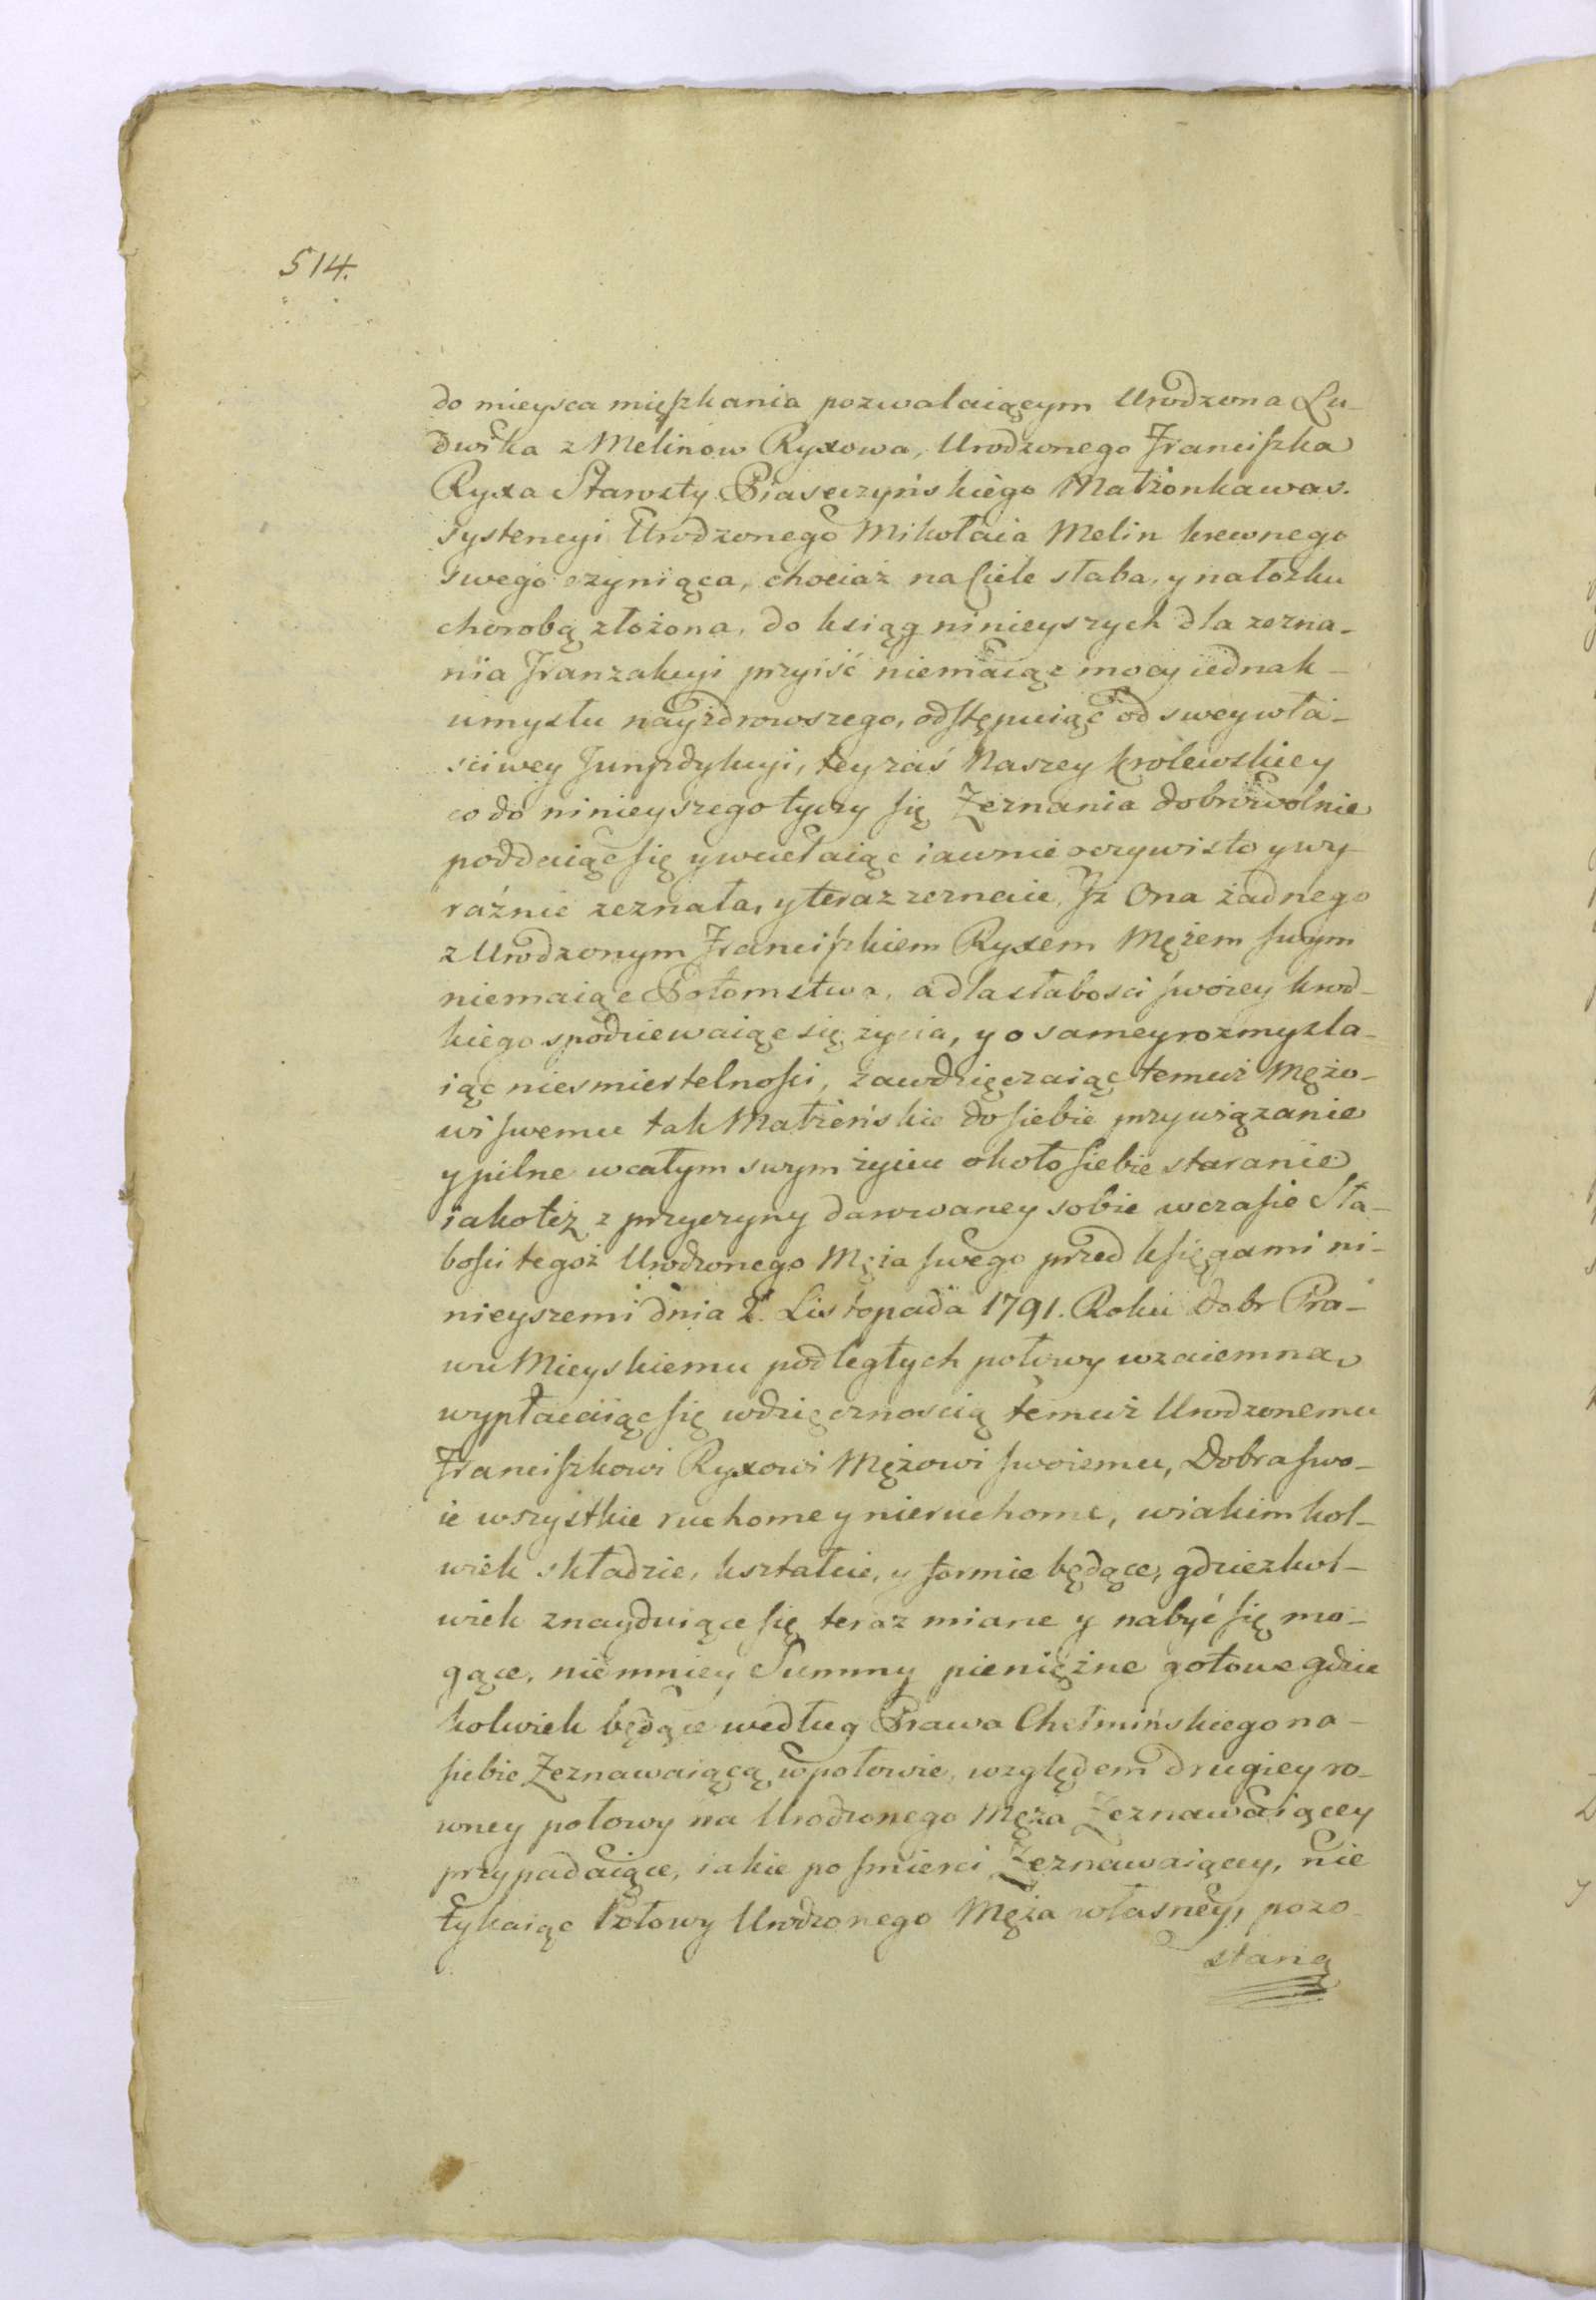 514.
do mieysca mięszkania pozwalaiącym Urodzona Lu-
dwika z Melinow Ryxowa, Urodzonego Franciszka
Ryxa Starosty Piaseczyńskiego Małżonka w as.
systencyi Urodzonego Mikołaia Melin krewnego
swego czyniąca, chociaż na Ciele słaba, y na łożku
chorobą złożona, do ksiąg ninieyszych dla zezna-
nia Tranzakcyi przyiść niemaiąc mocy iednak-
umysłu nayzdrowszego, odstępuiąc od swey wła-
sciwey Juryzdykcyi, tey zaś Naszey Krolewskiey
co do ninieyszego tyczy się Zeznania dobrowolnie
poddaiąc się y wcielaiąc iawnie oczywisto y wy-
raźnie zeznała, y teraz zeznaie, Jż Ona żadnego
z Urodzonym Franciszkiem Ryxem Mężem swym
niemaiąc Potomstwa, a dla słabosci swoiey krod-
kiego spodziewaiąc się życia, y o samey rozmyzla-
iąc niesmiertelności, zawdzięczaiąc temuż Mężo-
wi swemu tak Małżeńskie do siebie przywiązanie
y pilne w całym swym życiu około siebie staranie
iakoteż z przyczyny darowaney sobie w czasie Sła-
bości tegoż Urodzonego Męża swego przed księgami ni-
nieyszemi dnia 2. Listopada 1791. Roku Dobr Pra-
wu Mieyskiemu podległych połowy wzaiemną
wypłacaiąc się wdzięcznoscią temuż Urodzonemu
Franciszkowi Ryxowi Mężowi swoiemu, Dobra swo-
ie wszystkie ruchome y nieruchome, w iakim kol-
wiek składzie, kształcie, y formie będące, gdziezkol-
wiek znayduiące się teraz miane y nabyć się mo-
gące, niemniey Summy pieniężne gotowe gdzie
kolwiek będące według Prawa Chełmińskiego na-
siebie Zeznawaiącą w połowie, względem drugiey ro-
wney połowy na Urodzonego Męża Zeznawaiącey
przypadaiące, iakie po smierci Zeznawaiącey, nie
tykaiąc Połowy Urodzonego Męża własney, pozo-
staną